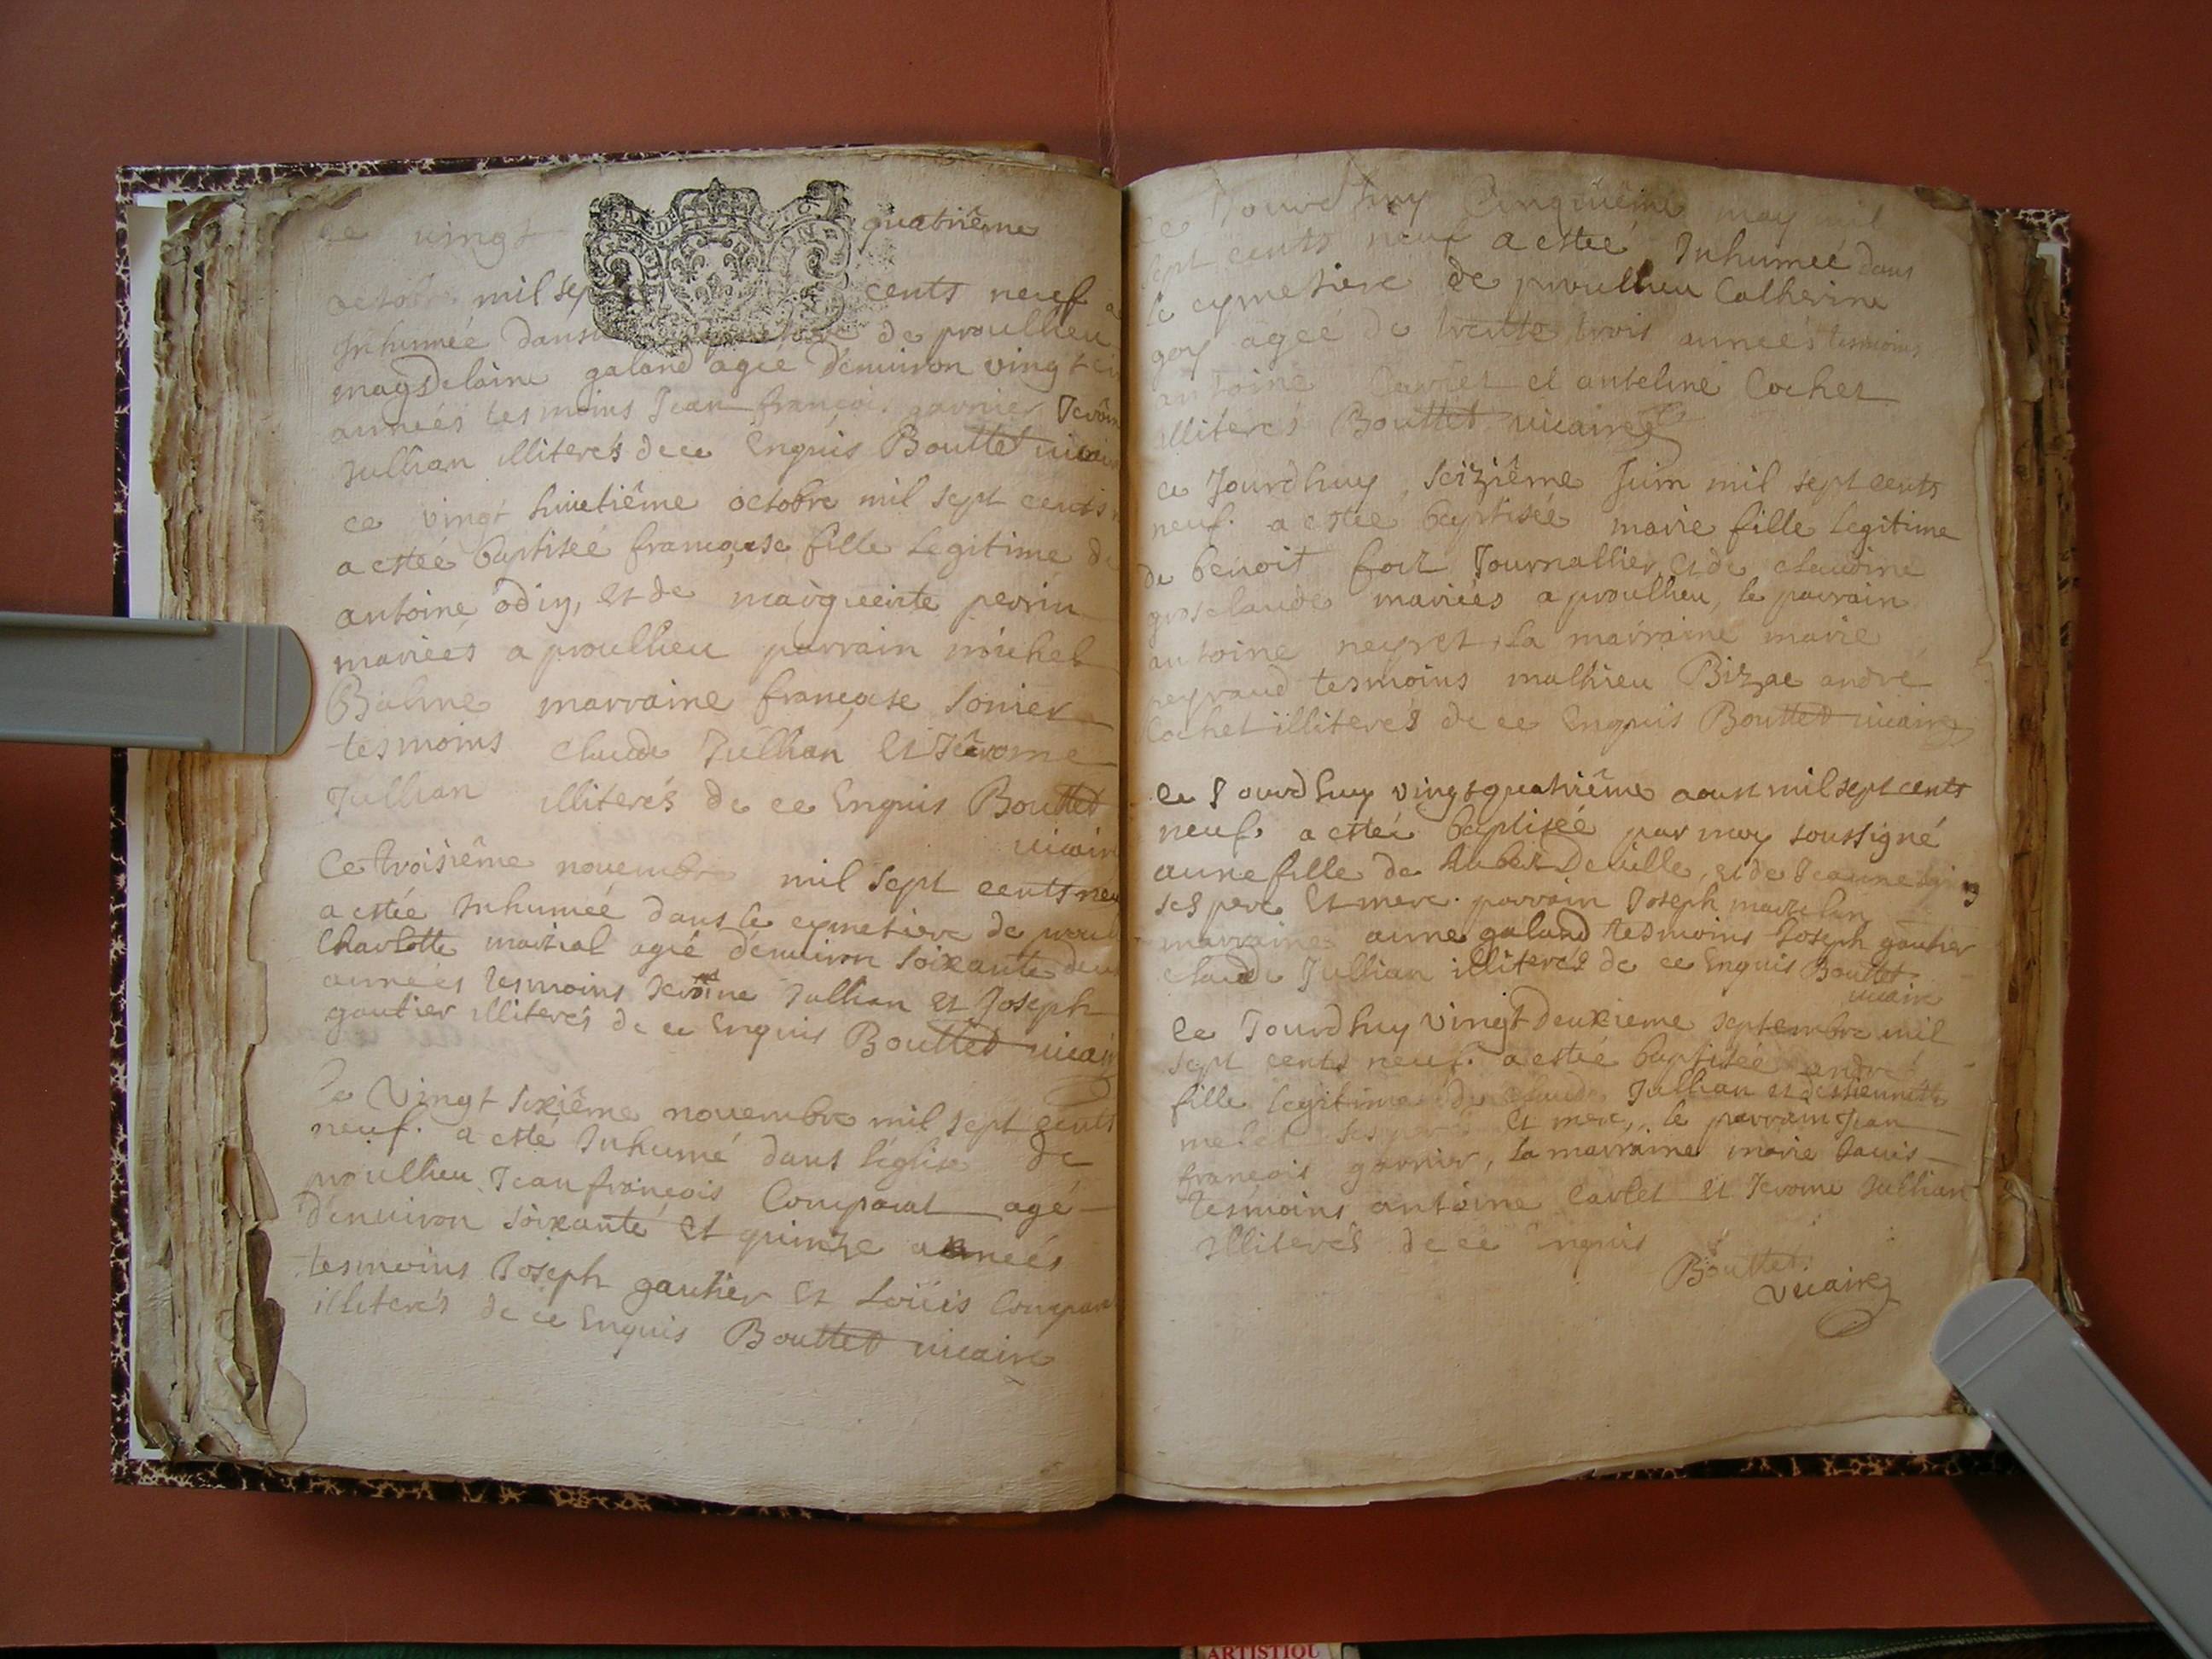 ce vingt quatriême
octobre mil sept cents neuf a
Inhumée dans de proulhieu
magdelaine galand agée d'enuiron vingt
années tesmoins Jean françois garnier Jerôm
Jullian illiterés de ce Enquis Bouttet uicair
ce vingt huietiême octobre mil sept cents
a estée baptisée françoise fille Legitime de
antoine odin, et de margueirte perrin
mariées a proulhieu parrain michel
Balme marraine françoise sonier
tesmoins claude Jullian Et Jerome
Jullian illiterés de ce Enquis Bouttet
uicair
Ce troisiême novembre mil sept cents neu
a estée Inhumée dans le cymetiere de proul
Charlotte martial agée d'enuiron soixante deu
années tesmoins Jerôme Jullian et Joseph
gautier illiterés de ce Enquis Bouttet uicair
Ce Vingt sixiême novembre mil sept cents
neuf. a esté Inhumé dans l'eglise de
proulhieu Jean françois Comparat agé
d'enuiron soixante et quinze années
tesmoins Joseph gautier Et Loüis Compar
illiterés de ce Enquis Bouttet uicaire
Ce Jourdhuy Cinquiême may mil
sept cents neuf a estée Inhumée dans
le cymetiere de proulhieu Catherine
goy agée de trente trois années tesmoins
antoine et antelme Cochet
illiterés Bouttet uicaire
ce Jourdhuy seiziême Juin mil sept cents
neuf. a estée baptisée marie fille Legitime
de benoit Journallier et de claudine
grosclaude mariées a proulhieu, le parrain
antoine neyret, la marraine marie
reyraud tesmoins mathieu Bizae andre
Cochet illiterés de ce Enquis Bouttet uicaire
Ce Jourdhuy vingt quatriême aoust mil sept cents
neuf. a estée baptisée par moy soussigné
anne fille de hubert Deuille, et de Jeanne
ses pere Et mere. parrain Joseph
marraine anne galand tesmoins Joseph gautier
claude Jullian illiterés de ce Enquis Bouttet
uicaire
Ce Jourdhuy Vingt deuxieme septembre mil
sept cents neuf. a estée baptisée andré
fille legitime de claude Jullian et destiennette
melet ses pere Et mere, le parrain Jean
françois garnier, la marraine marie
tesmoins antoine Carlet et Jerome Jullian
illiterés de ce Enquis
Bouttet
vicaire
ARTISTIQU